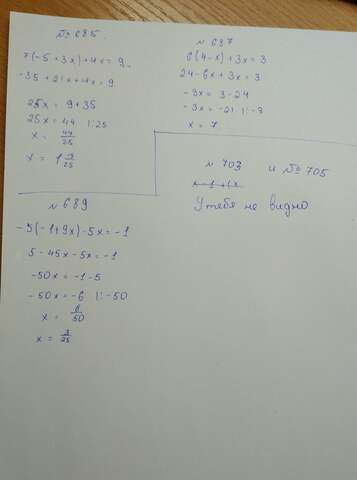 № 685.
7(-5+3x)+4x=9
-35+21x+4x=9
25x = 9+35
25x = 44 |:25
x = 44/25
x = 1 9/25
№ 687
6(4-x)+3x=3
24-6x+3x=3
-3x=3-24
-3x=-21 |:-3
x = 7
№ 689
-5(-1+9x)-5x=-1
5-45x-5x=-1
-50x=-1-5
-50x=-6 |:-50
x = 6/50
x = 3/25
№ 703 и № 705
У тебя не видно